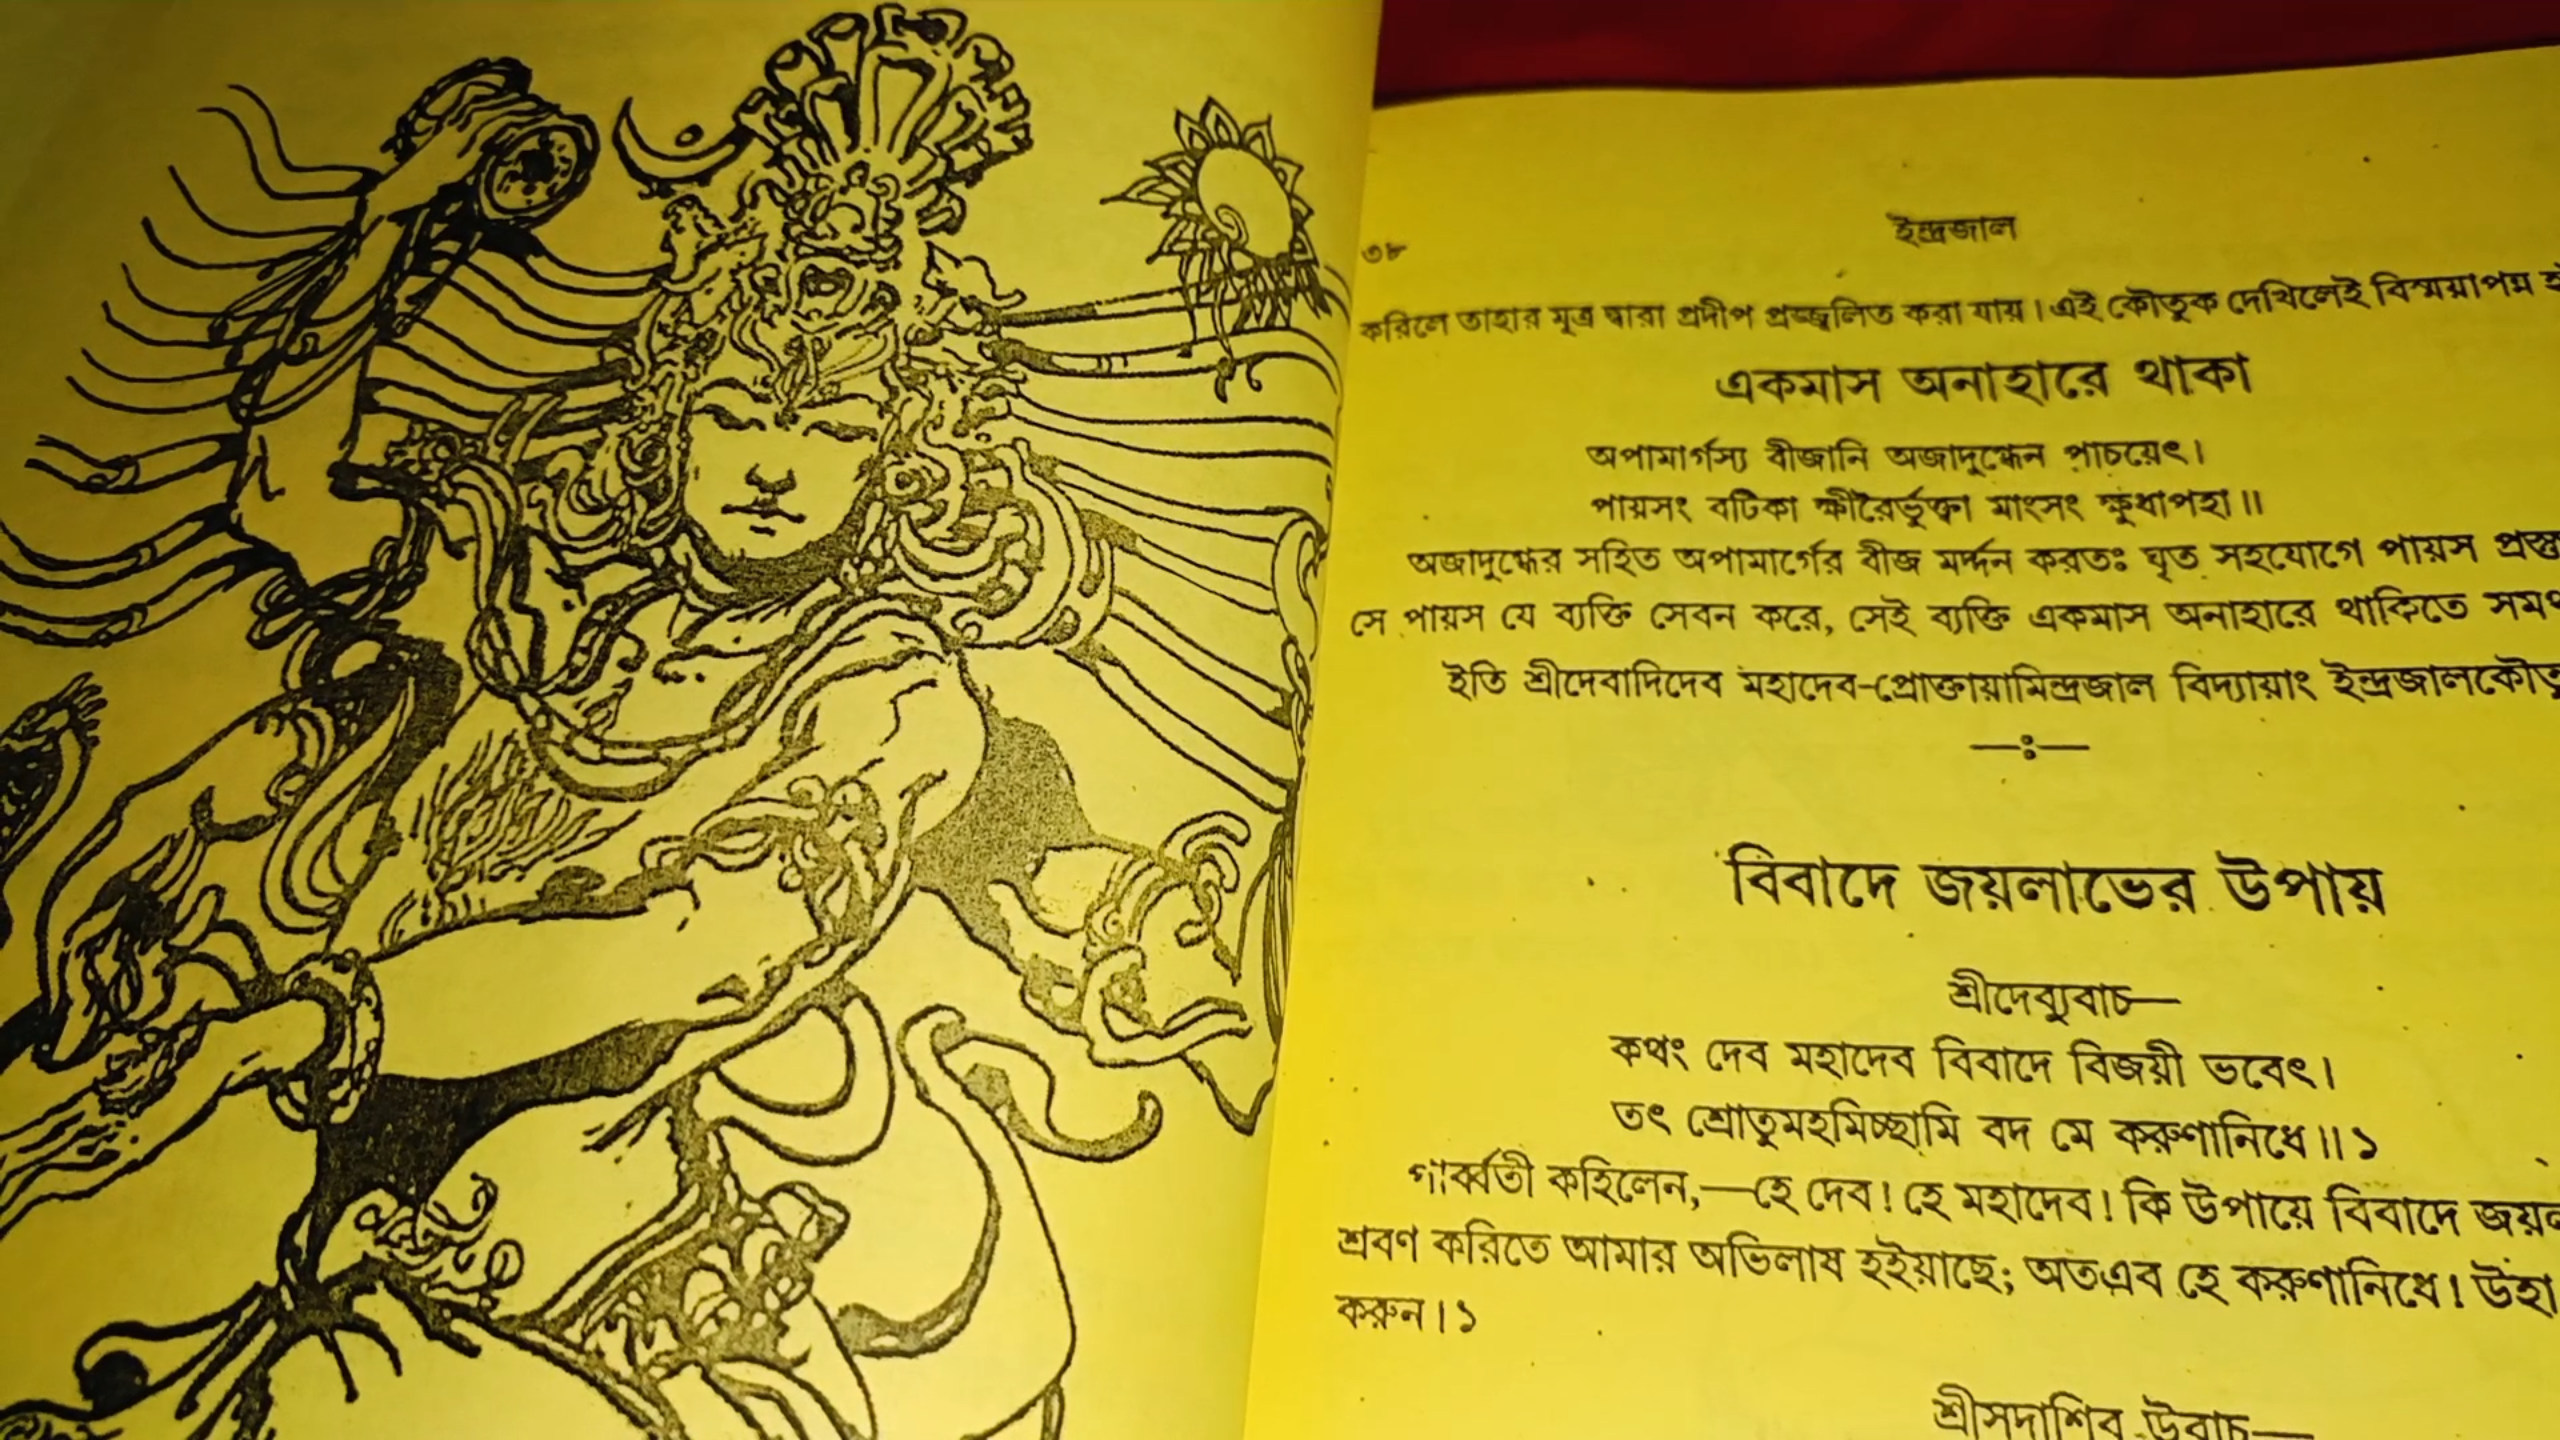 ৩৮
ইন্দ্রজাল
করিলে তাহার মূত্র দ্বারা প্রদীপ প্রজ্জ্বলিত করা যায়। এই কৌতুক দেখিলেই বিস্ময়াপন্ন
একমাস অনাহারে থাকা
অপামার্গস্য বীজানি অজাদুগ্ধেন পাচয়েৎ।
পায়সং বটিকা ক্ষীরৈর্ভুক্ত্বা মাংসং ক্ষুধাপহা॥
অজাদুগ্ধের সহিত অপামার্গের বীজ মর্দ্দন করতঃ ঘৃত সহযোগে পায়স
সে পায়স যে ব্যক্তি সেবন করে, সেই ব্যক্তি একমাস অনাহারে থাকিতে
ইতি শ্রীদেবাদিদেব মহাদেব-প্রোক্তায়ামিন্দ্রজাল বিদ্যায়াং
—ঃ—
বিবাদে জয়লাভের উপায়
শ্রীদেব্যুবাচ—
কথং দেব মহাদেব বিবাদে বিজয়ী ভবেৎ।
তৎ শ্রোতুমহমিচ্ছামি বদ মে করুণানিধে॥১
পার্ব্বতী কহিলেন,—হে দেব! হে মহাদেব! কি উপায়ে বিবাদে
শ্রবণ করিতে আমার অভিলাষ হইয়াছে; অতএব হে করুণানিধে! উহা
করুন।১
শ্রীসদাশিব উবাচ—